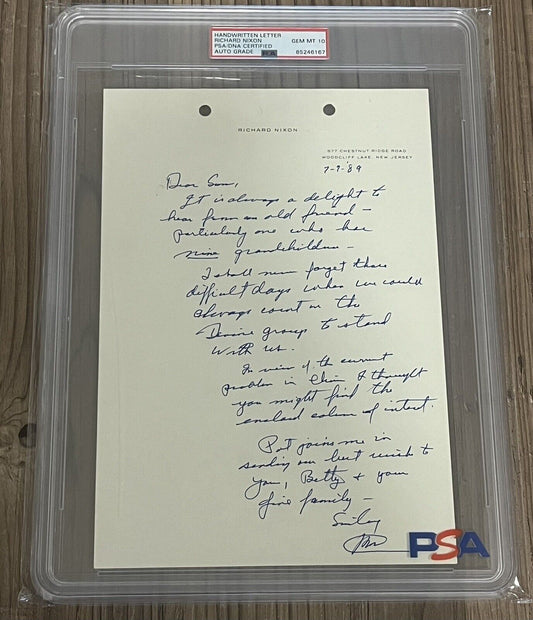 HANDWRITTEN LETTER
RICHARD NIXON GEM MT 10
PSA/DNA CERTIFIED
AUTO GRADE 85246167
RICHARD NIXON
577 CHESTNUT RIDGE ROAD
WOODCLIFF LAKE, NEW JERSEY
7-7-'89
Dear
It is always a delight to
hear from an old friend -
particularly one who has
nine grandchildren -
I shall never forget those
difficult days when we could
always count on the
group to stand
with us.
In view of the current
problem in China I thought
you might find the
enclosed column of interest.
Pat joins me in
sending our best wishes to
you, Betty + your
fine family -
Sincerely
PSA